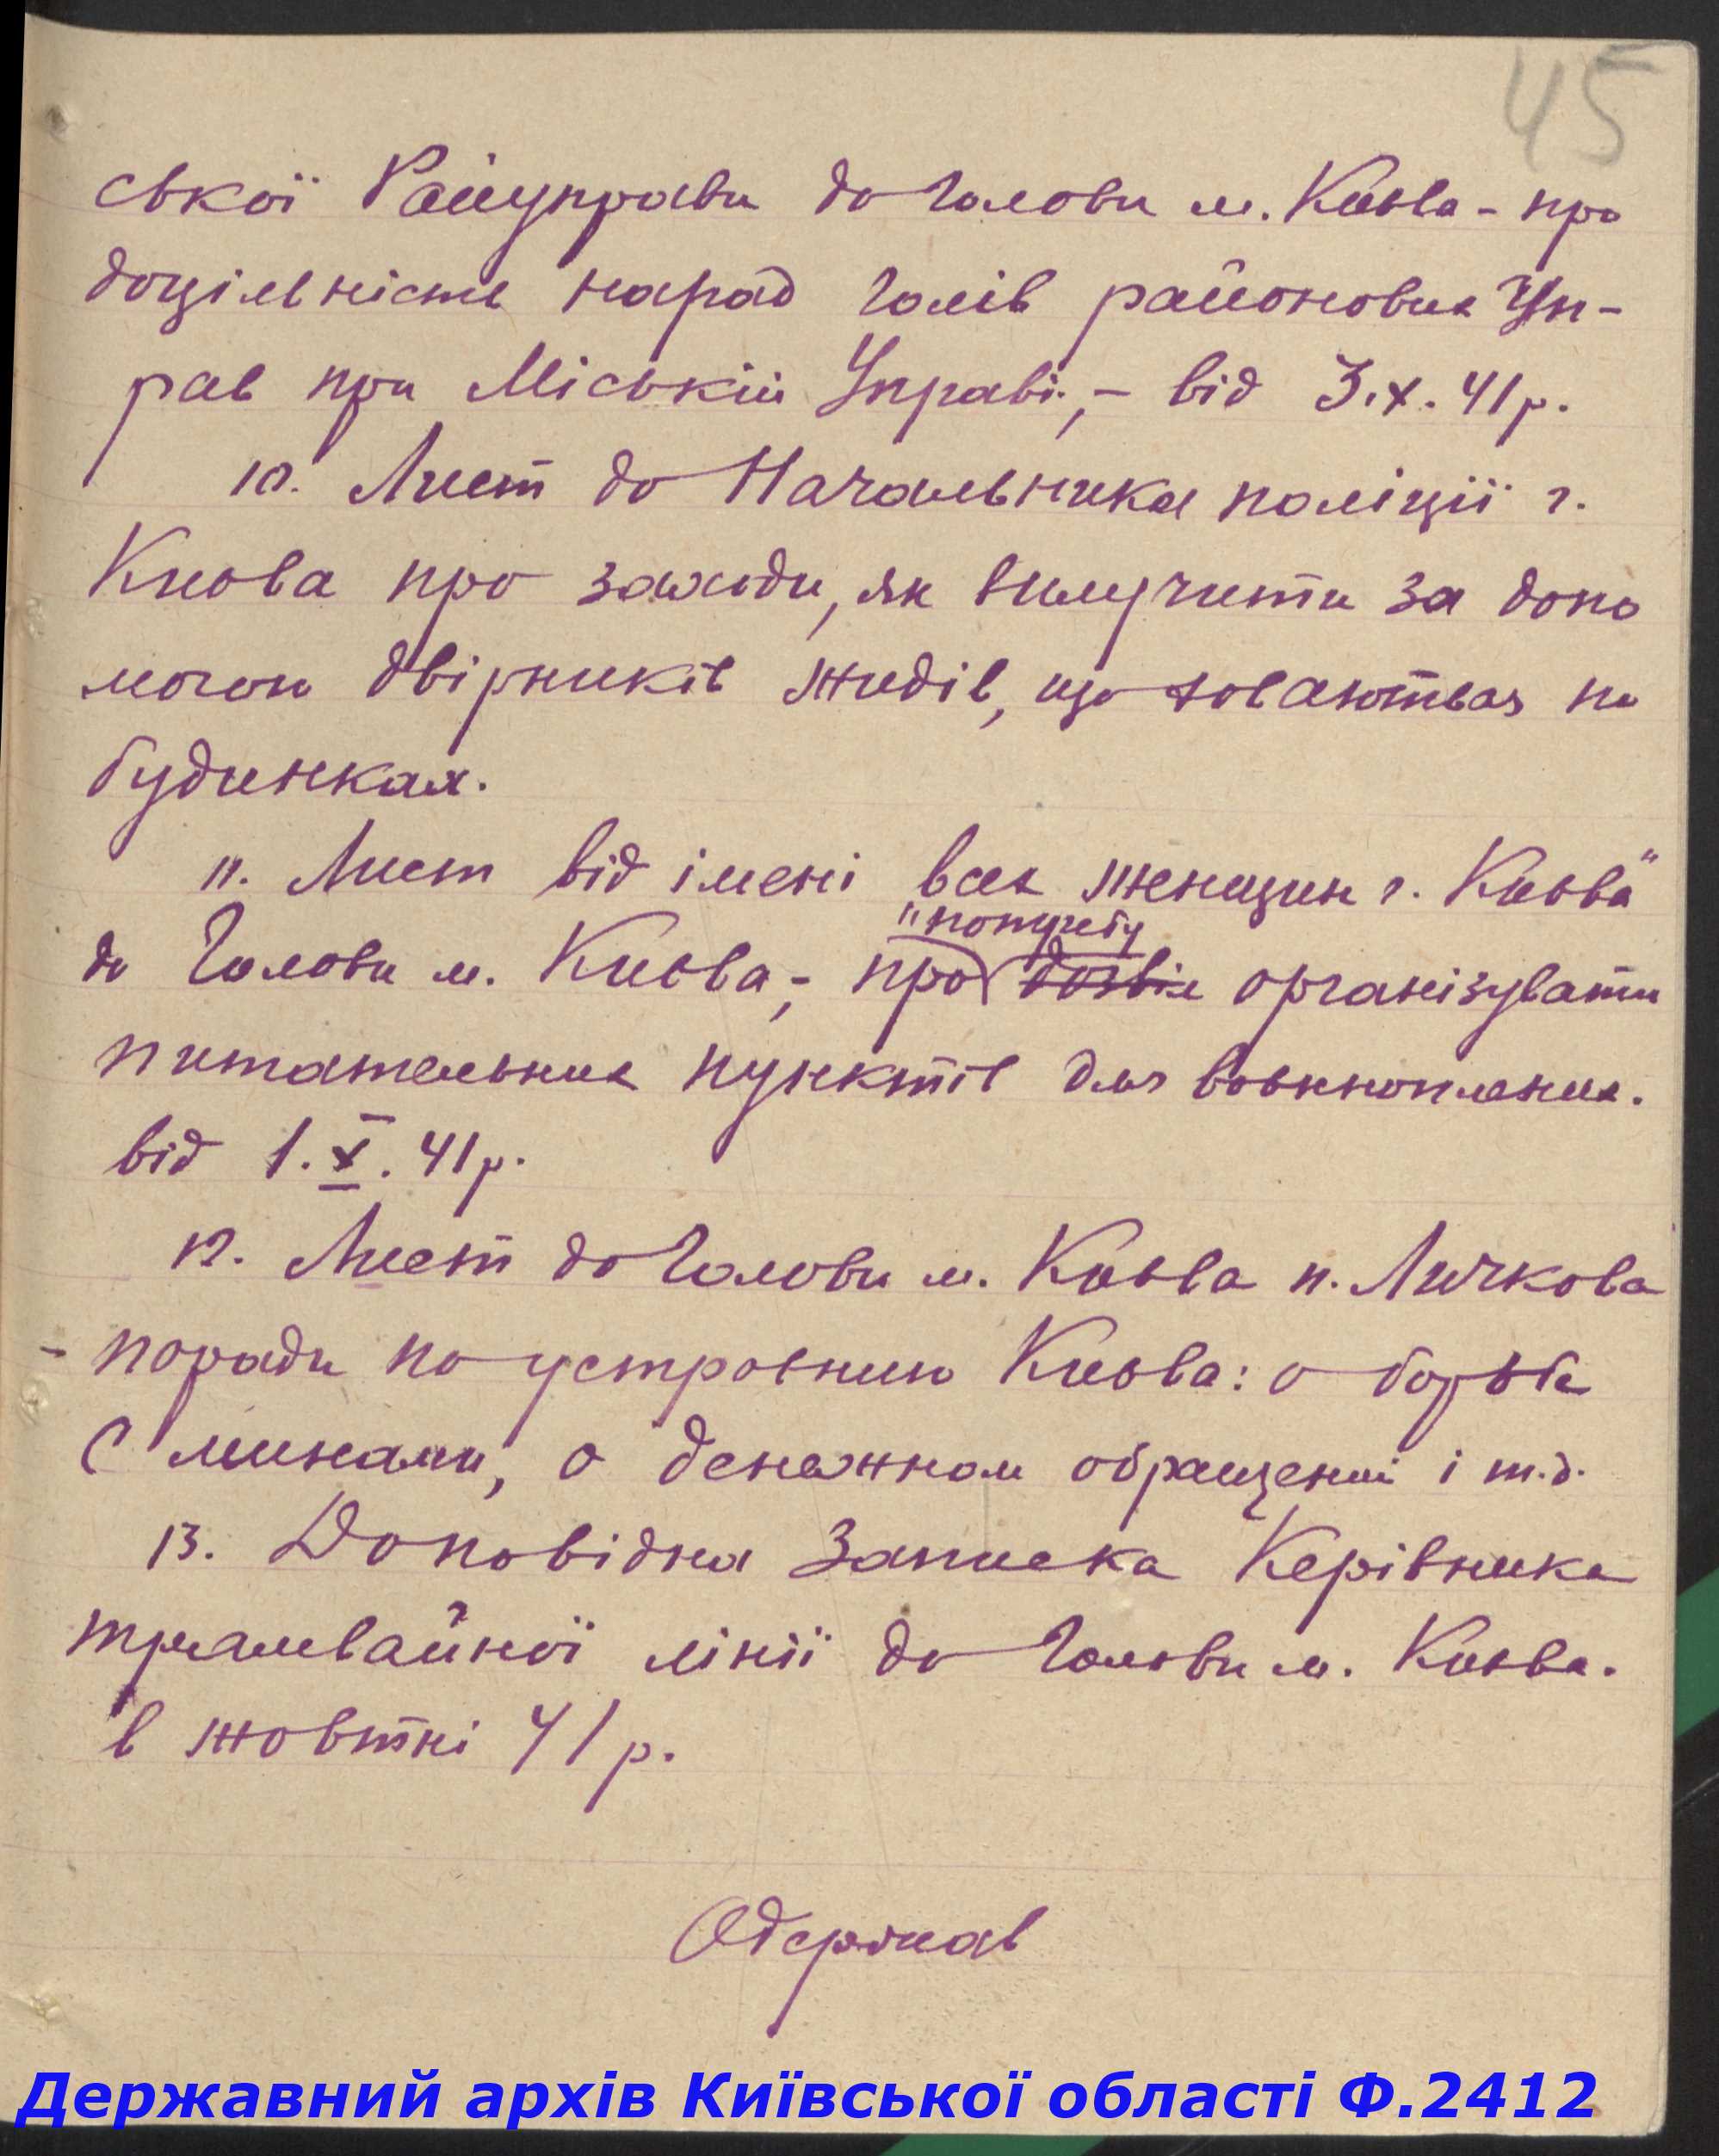 45
ської Райуправи до Голови м. Києва - про
доцільність нарад голів районових Уп-
рав при Міській Управі, - від 3.X.41р.
10. Лист до Начальника поліції г.
Києва про заходи, як вилучити за допо
могою двірників жидів, що ховаються по
будинках.
11. Лист від імені "всех женщин г. Києва"
"потребу
до Голови м. Києва, - про дозвіл організувати
питательних пунктів для военнопленних.
від 1.X.41р.
12. Лист до Голови м. Києва п. Личкова
- поради по устроению Києва: о борьбе
с минами, о денежном обращении і т.д.
13. Доповідна Записка Керівника
трамвайної лінії до Голови м. Києва.
в жовтні 41р.
Одержав
Державний архів Київської області Ф.2412